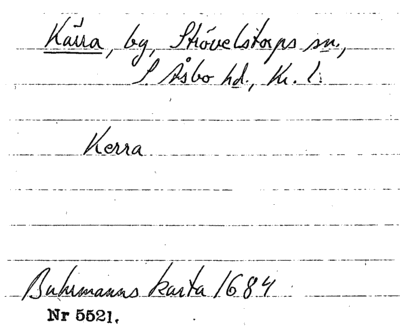 Kärra, by, Strövelstorps sn.,
S. Åsbo hd., Kr. l.
Kerra
Buhrmanns karta 1684
Nr 5521.